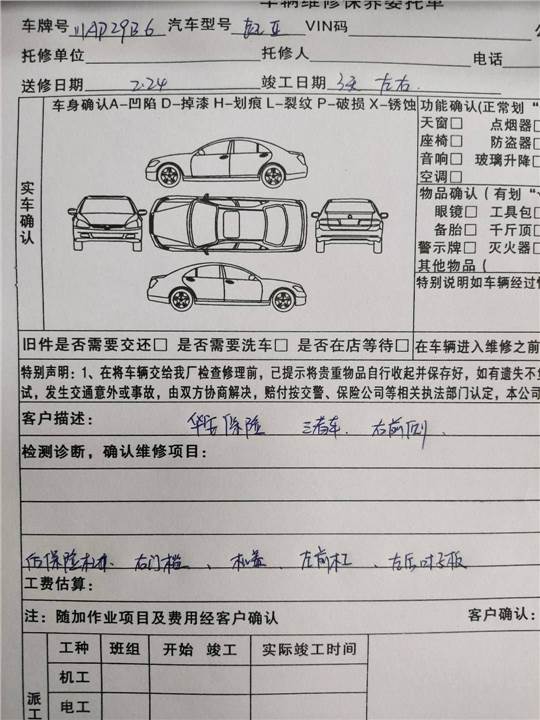 车辆维修保养委托单
车牌号 川AD29B6 汽车型号 VIN码
托修单位 托修人 电话
送修日期 2.24 竣工日期 3天左右.
实车确认
车身确认A-凹陷 D-掉漆 H-划痕 L-裂纹 P-破损 X-锈蚀
功能确认(正常划“
天窗□ 点烟器□
座椅□ 防盗器□
音响□ 玻璃升降□
空调□
物品确认(有划“
眼镜□ 工具包□
备胎□ 千斤顶□
警示牌□ 灭火器□
其他物品(
特别说明如车辆经过
旧件是否需要交还□ 是否需要洗车□ 是否在店等待□ 在车辆进入维修之前
特别声明：1、在将车辆交给我厂检查修理前，已提示将贵重物品自行收起并保存好，如有遗失不
试，发生交通意外或事故，由双方协商解决，赔付按交警、保险公司等相关执法部门认定，本公司
客户描述： 华安保险 三者车. 右前侧.
检测诊断，确认维修项目：
后保险杠. 右门槛、机盖、左前杠、左后叶子板
工费估算：
注：随加作业项目及费用经客户确认 客户确认：
派工
工种 班组 开始 竣工 实际竣工时间
机工
电工